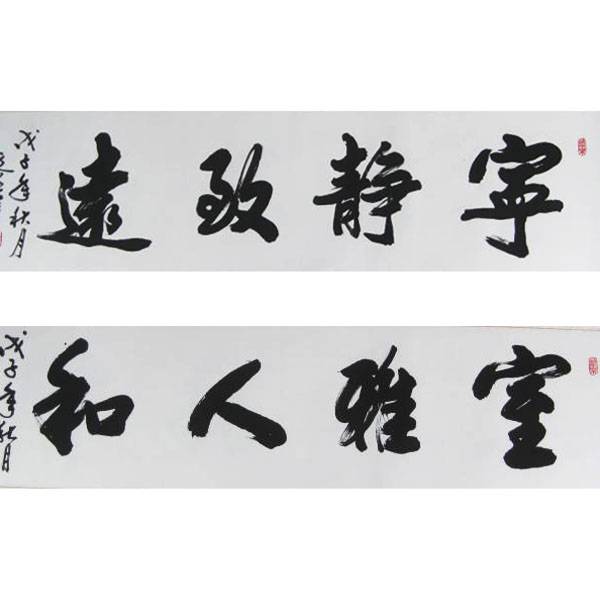 寧靜致遠
戊子年秋月
室雅人和
戊子年秋月